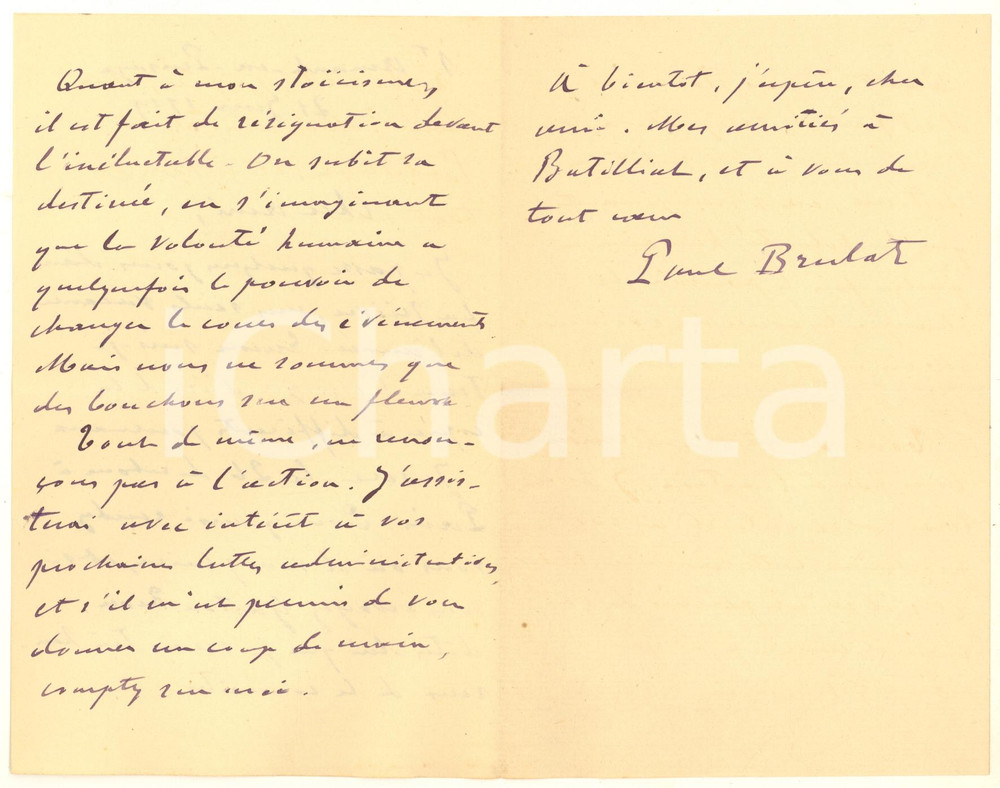 Quant à mon stoïcisme,
il est fait de résignation devant
l'inéluctable - On subit sa
destinée, en s'imaginant
que la volonté humaine a
quelquefois le pouvoir de
changer le cours des événements
Mais nous ne sommes que
des bouchons sur un fleuve
Tout de même, ne renon-
çons pas à l'action. J'assis-
terai avec intérêt à vos
prochaines luttes administratives,
et s'il m'est permis de vous
donner un coup de main,
comptez sur moi.
À bientôt, j'espère, cher
ami. Mes amitiés à
Batilliat, et à vous de
tout cœur
Paul Brulat
iCharta